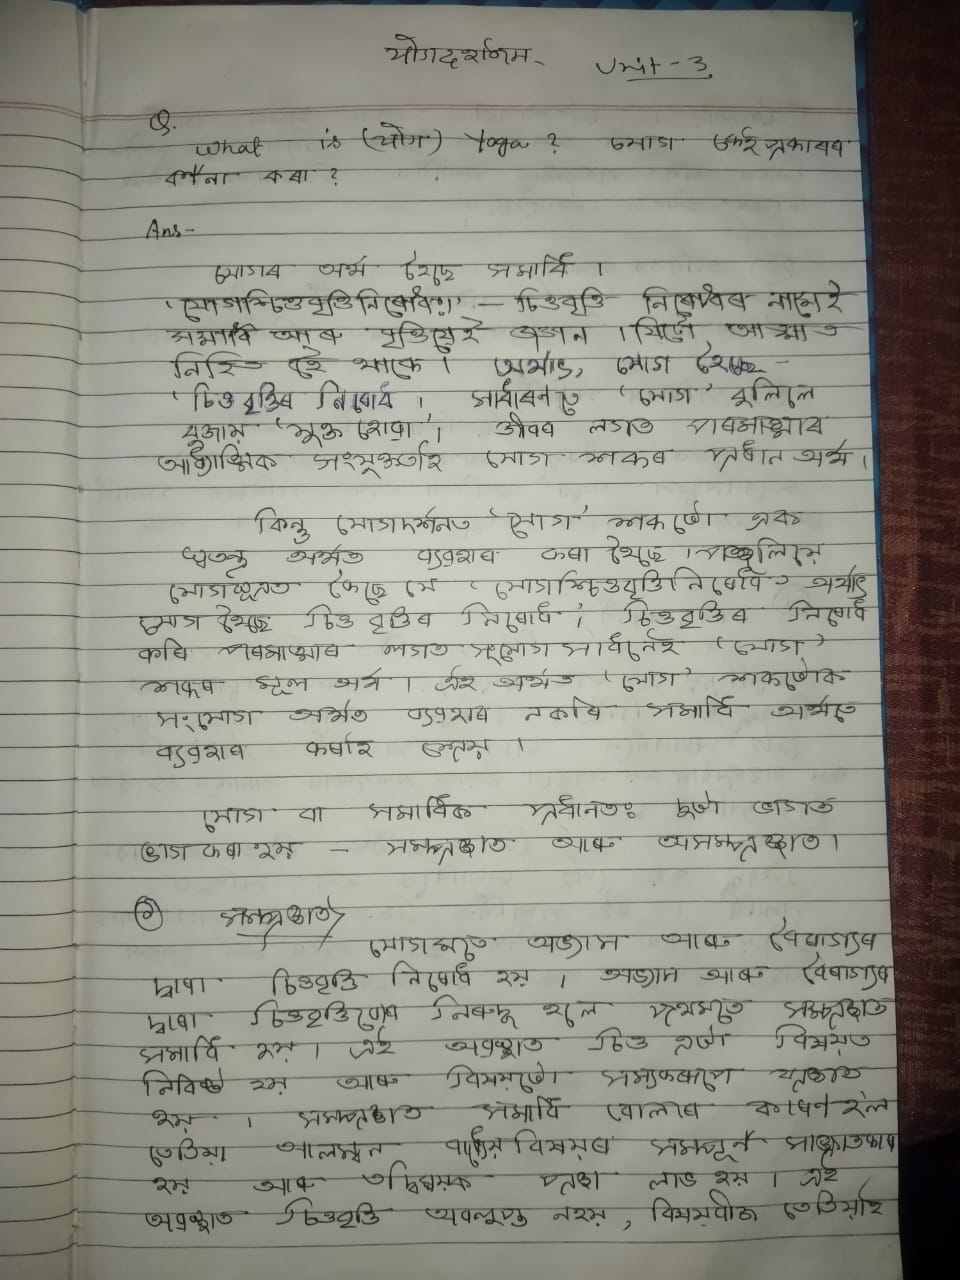 যোগদৰ্শনম্   Unit - 3
Q.
What is (যোগ) Yoga? যোগ কেইপ্ৰকাৰৰ
বৰ্ণনা কৰা?
Ans-
যোগৰ অৰ্থ হৈছে সমাধি।
'যোগশ্চিত্তবৃত্তিনিৰোধঃ' – চিত্তবৃত্তি নিৰোধৰ নামেই
সমাধি আৰু বৃত্তিয়েই জ্ঞান। যিটো আত্মাত
নিহিত হৈ থাকে। অৰ্থাৎ, যোগ হৈছে –
'চিত্তবৃত্তিৰ নিৰোধ। সাধাৰণতে 'যোগ' বুলিলে
বুজায় 'যুক্ত হোৱা'। জীৱৰ লগত পৰমাত্মাৰ
আধ্যাত্মিক সংযুক্তিই যোগ শব্দৰ প্ৰধান অৰ্থ।
কিন্তু যোগদৰ্শনত 'যোগ' শব্দটো এক
স্বতন্ত্ৰ অৰ্থত ব্যৱহাৰ কৰা হৈছে। পতঞ্জলিয়ে
যোগসূত্ৰত কৈছে যে 'যোগশ্চিত্তবৃত্তিনিৰোধঃ' অৰ্থাৎ
যোগ হৈছে চিত্তবৃত্তিৰ নিৰোধ। চিত্তবৃত্তিৰ নিৰোধ
কৰি পৰমাত্মাৰ লগত সংযোগ সাধনেই 'যোগ'
শব্দৰ মূল অৰ্থ। এই অৰ্থত 'যোগ' শব্দটোক
সংযোগ অৰ্থত ব্যৱহাৰ নকৰি সমাধি অৰ্থতে
ব্যৱহাৰ কৰাই শ্ৰেয়।
যোগ বা সমাধিক প্ৰধানতঃ দুটা ভাগত
ভাগ কৰা হয় – সম্প্ৰজ্ঞাত আৰু অসম্প্ৰজ্ঞাত।
১) সম্প্ৰজ্ঞাত
যোগমতে অভ্যাস আৰু বৈৰাগ্যৰ
দ্বাৰা চিত্তবৃত্তি নিৰোধ হয়। অভ্যাস আৰু বৈৰাগ্যৰ
দ্বাৰা চিত্তবৃত্তিবোৰ নিৰুদ্ধ হলে প্ৰথমতে সম্প্ৰজ্ঞাত
সমাধি হয়। এই অৱস্থাত চিত্ত এটা বিষয়ত
নিবিষ্ট হয় আৰু বিষয়টো সম্যকৰূপে প্ৰজ্ঞাত
হয়। সম্প্ৰজ্ঞাত সমাধি বোলাৰ কাৰণ হ'ল
তেতিয়া আলম্বন বিষয়ৰ সম্পূৰ্ণ সাক্ষাতকাৰ
হয় আৰু তদ্বিষয়ক প্ৰজ্ঞা লাভ হয়। এই
অৱস্থাত চিত্তবৃত্তি অৱলুপ্ত নহয়, বিষয়বীজ তেতিয়াও